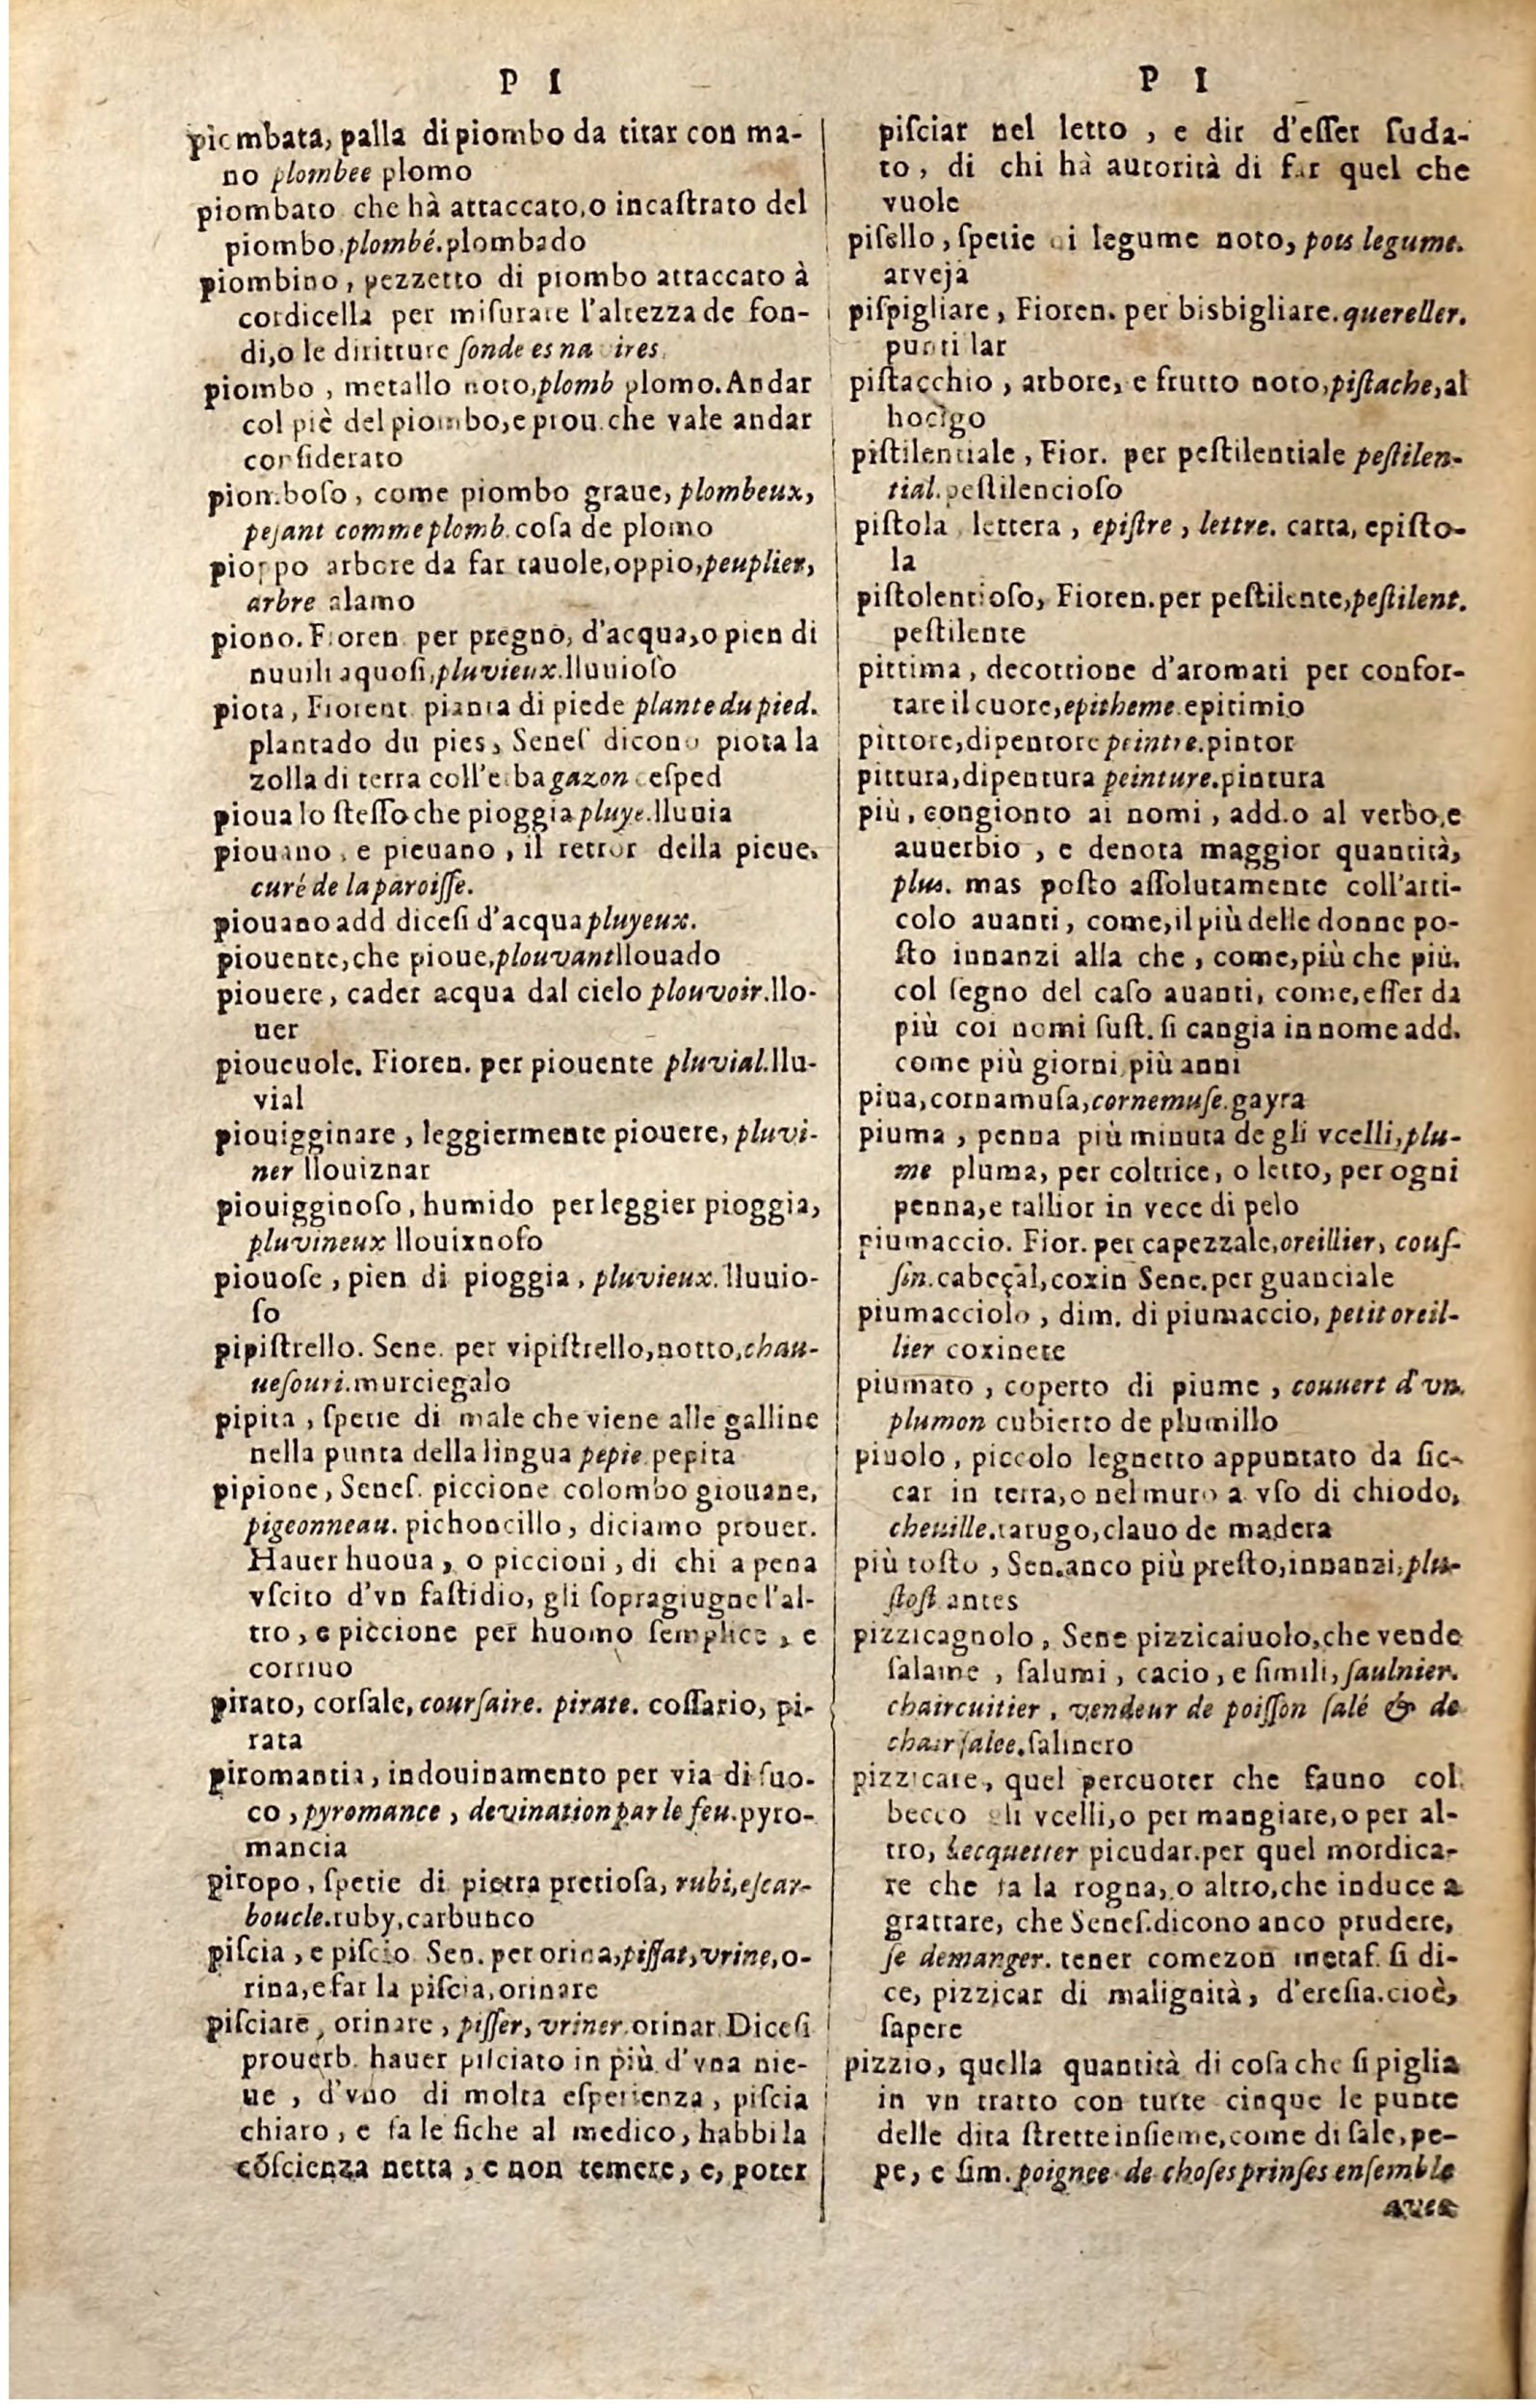 P I
piombata, palla di piombo da tirar con ma-
no plombee plomo
piombato che hà attaccato, o incaſtrato del
piombo, plombé. plombado
piombino, pezzetto di piombo attaccato à
cordicella per miſurare l'altezza de fon-
di, o le diritture ſonde es navires.
piombo, metallo noto, plomb plomo. Andar
col piè del piombo, e prou. che vale andar
conſiderato
piomboſo, come piombo graue, plombeux,
peſant comme plomb. coſa de plomo
pioppo arbore da far tauole, oppio, peuplier,
arbre alamo
piono. Fioren per pregno, d'acqua, o pien di
nuuili aquoſi, pluvieux. lluuioſo
piota, Fiorent. pianta di piede plante du pied.
plantado du pies, Seneſ dicono piota la
zolla di terra coll'erba gazon ceſped
pioua lo ſteſſo che pioggia pluye. lluuia
piouano, e pieuano, il rettor della pieue.
curé de la paroiſſe.
piouano add diceſi d'acqua pluyeux.
piouente, che pioue, plouvant llouado
piouere, cader acqua dal cielo plouvoir. llo-
uer
pioueuole. Fioren. per piouente pluvial. llu-
vial
piouigginare, leggiermente piouere, pluvi-
ner llouiznar
piouigginoſo, humido per leggier pioggia,
pluvineux llouixnoſo
piouoſe, pien di pioggia, pluvieux. lluuio-
ſo
pipiſtrello. Sene. per vipiſtrello, notto, chau-
ueſouri. murciegalo
pipita, ſpetie di male che viene alle galline
nella punta della lingua pepie. pepita
pipione, Seneſ. piccione colombo giouane,
pigeonneau. pichoncillo, diciamo prouer.
Hauer huoua, o piccioni, di chi a pena
vſcito d'vn faſtidio, gli ſopragiugne l'al-
tro, e piccione per huomo ſemplice, e
corriuo
pirato, corſale, courſaire. pirate. coſſario, pi-
rata
piromantia, indouinamento per via di fuo-
co, pyromance, devination par le feu. pyro-
mancia
piropo, ſpetie di pietra pretioſa, rubi, eſcar-
boucle. ruby, carbunco
piſcia, e piſcio Sen. per orina, piſſat, vrine, o-
rina, e far la piſcia, orinare
piſciare, orinare, piſſer, vriner. orinar. Diceſi
prouerb. hauer piſciato in più d'vna nie-
ue, d'vno di molta eſperienza, piſcia
chiaro, e fa le fiche al medico, habbi la
cōſcienza netta, e non temere, e, poter
P I
piſciar nel letto, e dir d'eſſer ſuda-
to, di chi hà autorità di far quel che
vuole
piſello, ſpetie di legume noto, pois legume.
arveja
piſpigliare, Fioren. per bisbigliare. quereller.
puntillar
piſtacchio, arbore, e frutto noto, piſtache, al
hocigo
piſtilentiale, Fior. per peſtilentiale peſtilen-
tial. peſtilencioſo
piſtola, lettera, epiſtre, lettre. carta, epiſto-
la
piſtolentioſo, Fioren. per peſtilente, peſtilent.
peſtilente
pittima, decottione d'aromati per confor-
tare il cuore, epitheme. epitimio
pittore, dipentore peintre. pintor
pittura, dipentura peinture. pintura
più, congionto ai nomi, add. o al verbo, e
auuerbio, e denota maggior quantità,
plus. mas poſto aſſolutamente coll'arti-
colo auanti, come, il più delle donne po-
ſto innanzi alla che, come, più che più.
col ſegno del caſo auanti, come, eſſer da
più coi nomi ſuſt. ſi cangia in nome add.
come più giorni, più anni
piua, cornamuſa, cornemuſe. gayra
piuma, penna più minuta de gli vcelli, plu-
me pluma, per coltrice, o letto, per ogni
penna, e tallior in vece di pelo
piumaccio. Fior. per capezzale, oreillier, couſ-
ſin. cabeçal, coxin Sene. per guanciale
piumacciolo, dim. di piumaccio, petit oreil-
lier coxinete
piumato, coperto di piume, couuert d'vn
plumon cubierto de plumillo
piuolo, piccolo legnetto appuntato da fic-
car in terra, o nel muro a vſo di chiodo,
cheuille. tarugo, clauo de madera
più toſto, Sen. anco più preſto, innanzi, plu-
ſtoſt antes
pizzicagnolo, Sene pizzicaiuolo, che vende
ſalame, ſalumi, cacio, e ſimili, ſaulnier.
chaircuitier, vendeur de poiſſon ſalé & de
chair ſalee. ſalinero
pizzicare, quel percuoter che fauno col
becco gli vcelli, o per mangiare, o per al-
tro, becquetter picudar. per quel mordica-
re che fa la rogna, o altro, che induce a
grattare, che Seneſ. dicono anco prudere,
ſe demanger. tener comezon metaf. ſi di-
ce, pizzicar di malignità, d'ereſia. cioè,
ſapere
pizzio, quella quantità di coſa che ſi piglia
in vn tratto con tutte cinque le punte
delle dita ſtrette inſieme, come di ſale, pe-
pe, e ſim. poignee de choſes prinſes enſemble
avec